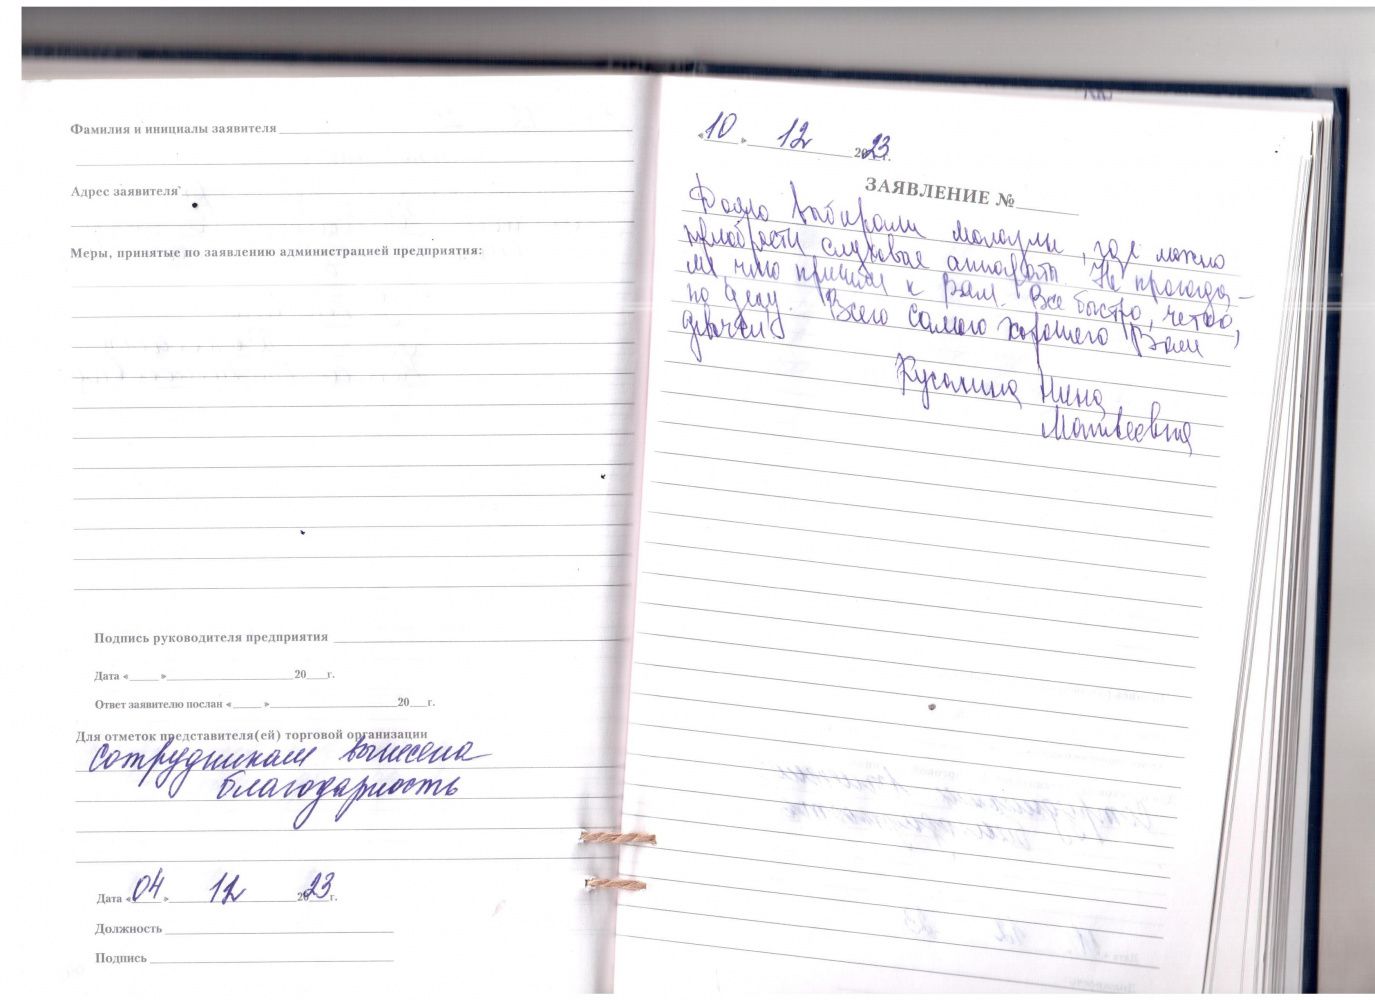 Фамилия и инициалы заявителя
Адрес заявителя
Меры, принятые по заявлению администрацией предприятия:
Подпись руководителя предприятия
Дата « » 20 г.
Ответ заявителю послан « » 20 г.
Для отметок представителя(ей) торговой организации
Сотрудникам вынесена
благодарность
Дата «04» 12 2023 г.
Должность
Подпись
«10» 12 2023 г.
ЗАЯВЛЕНИЕ №
Долго выбирали , где можно
приобрести слуховые аппараты. Не прогада-
ли что пришли к Вам. Все быстро, четко,
по делу. Всего самого хорошего Вам,
девочки!
Нина
Матвеевна